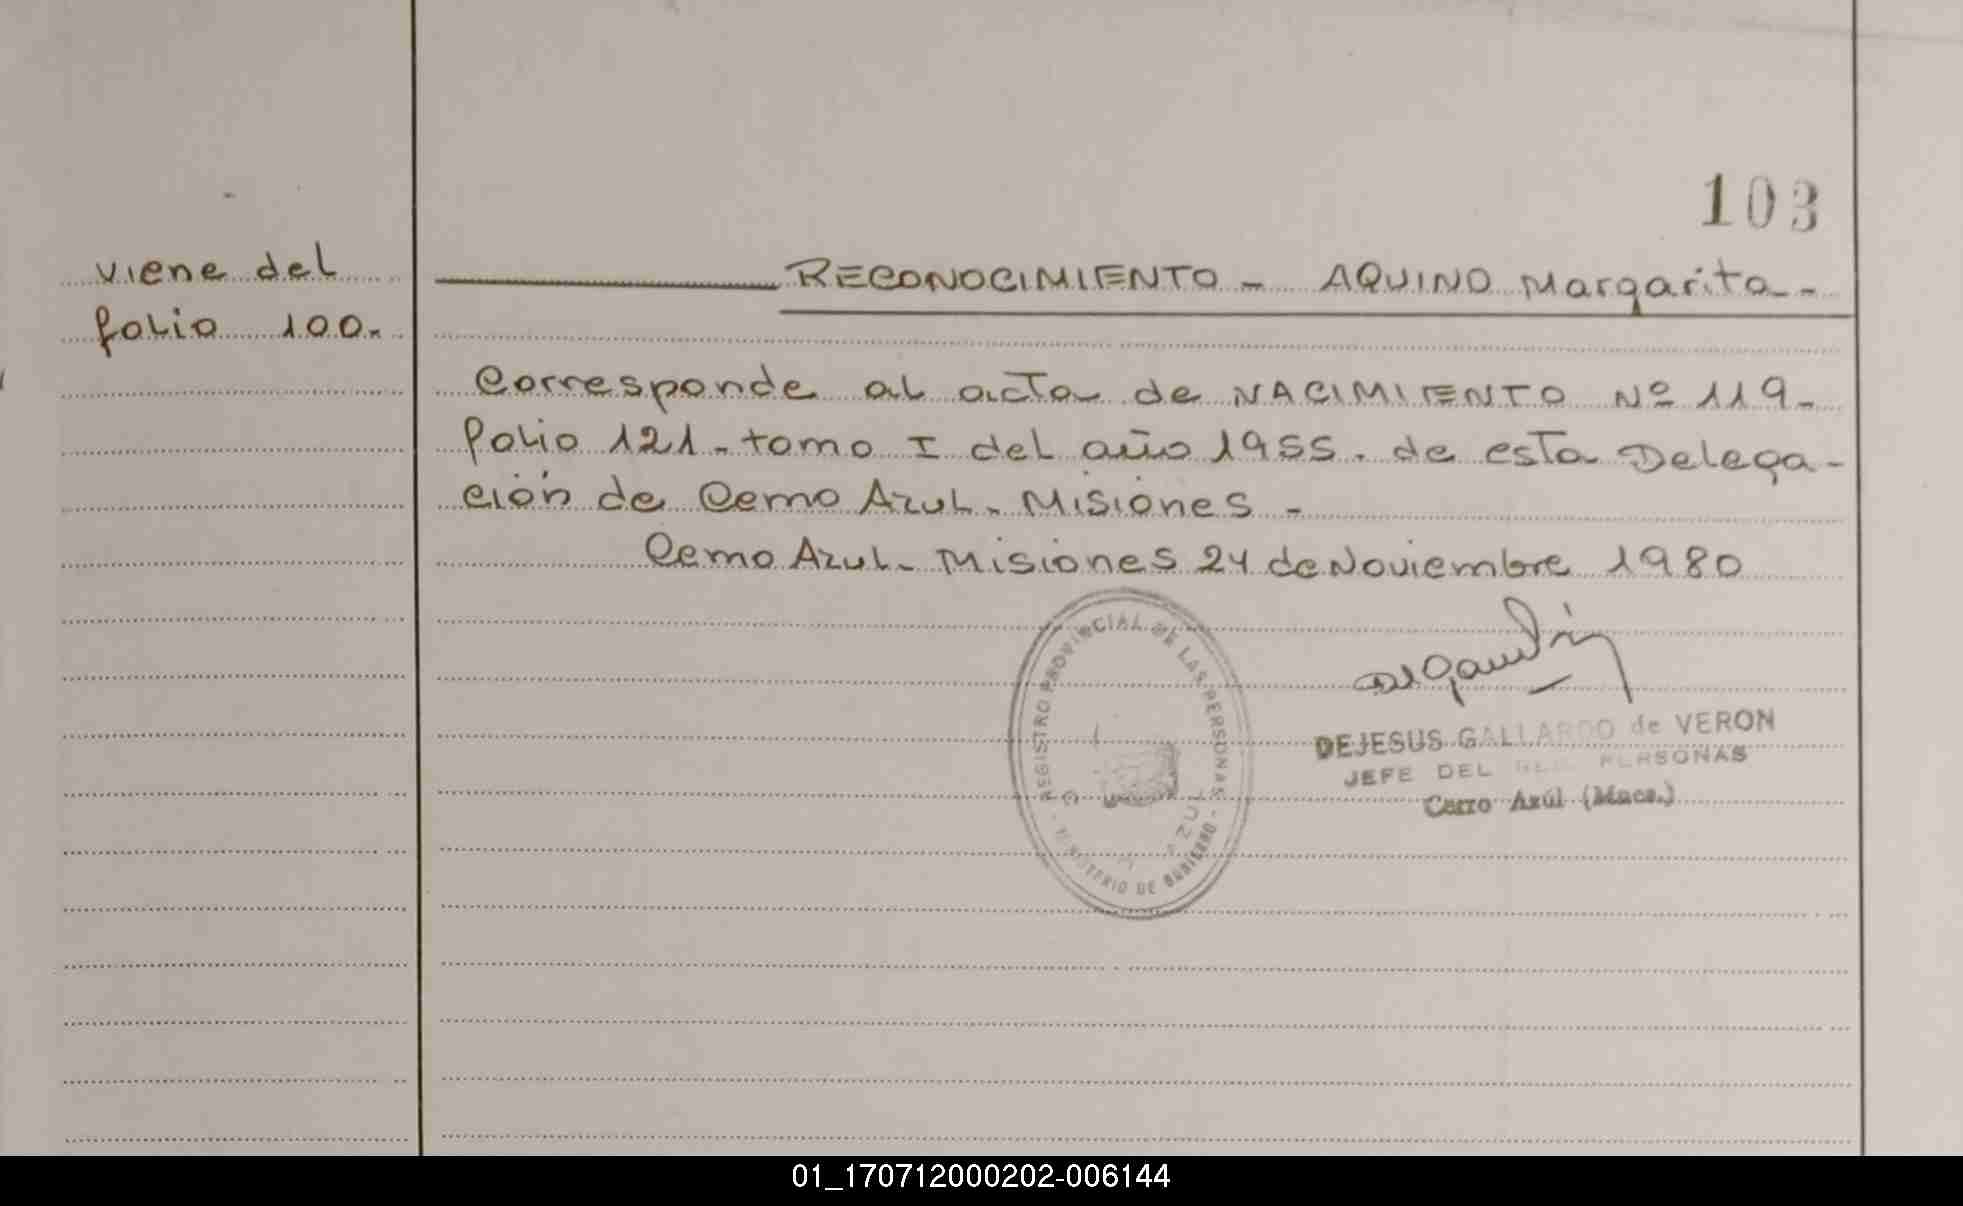 103
viene del
folio 100.
RECONOCIMIENTO - AQUINO Margarita -
Corresponde al acta de NACIMIENTO Nº 119 -
folio 121 - tomo I del año 1955. de esta Delega-
ción de Cerro Azul - Misiones -
Cerro Azul - Misiones 24 de Noviembre 1980
REGISTRO PROVINCIAL DE LAS PERSONAS
- MINISTERIO DE GOBIERNO -
DEJESUS GALLARDO de VERON
JEFE DEL REG. PERSONAS
Cerro Azúl (Mnes.)
01_170712000202-006144